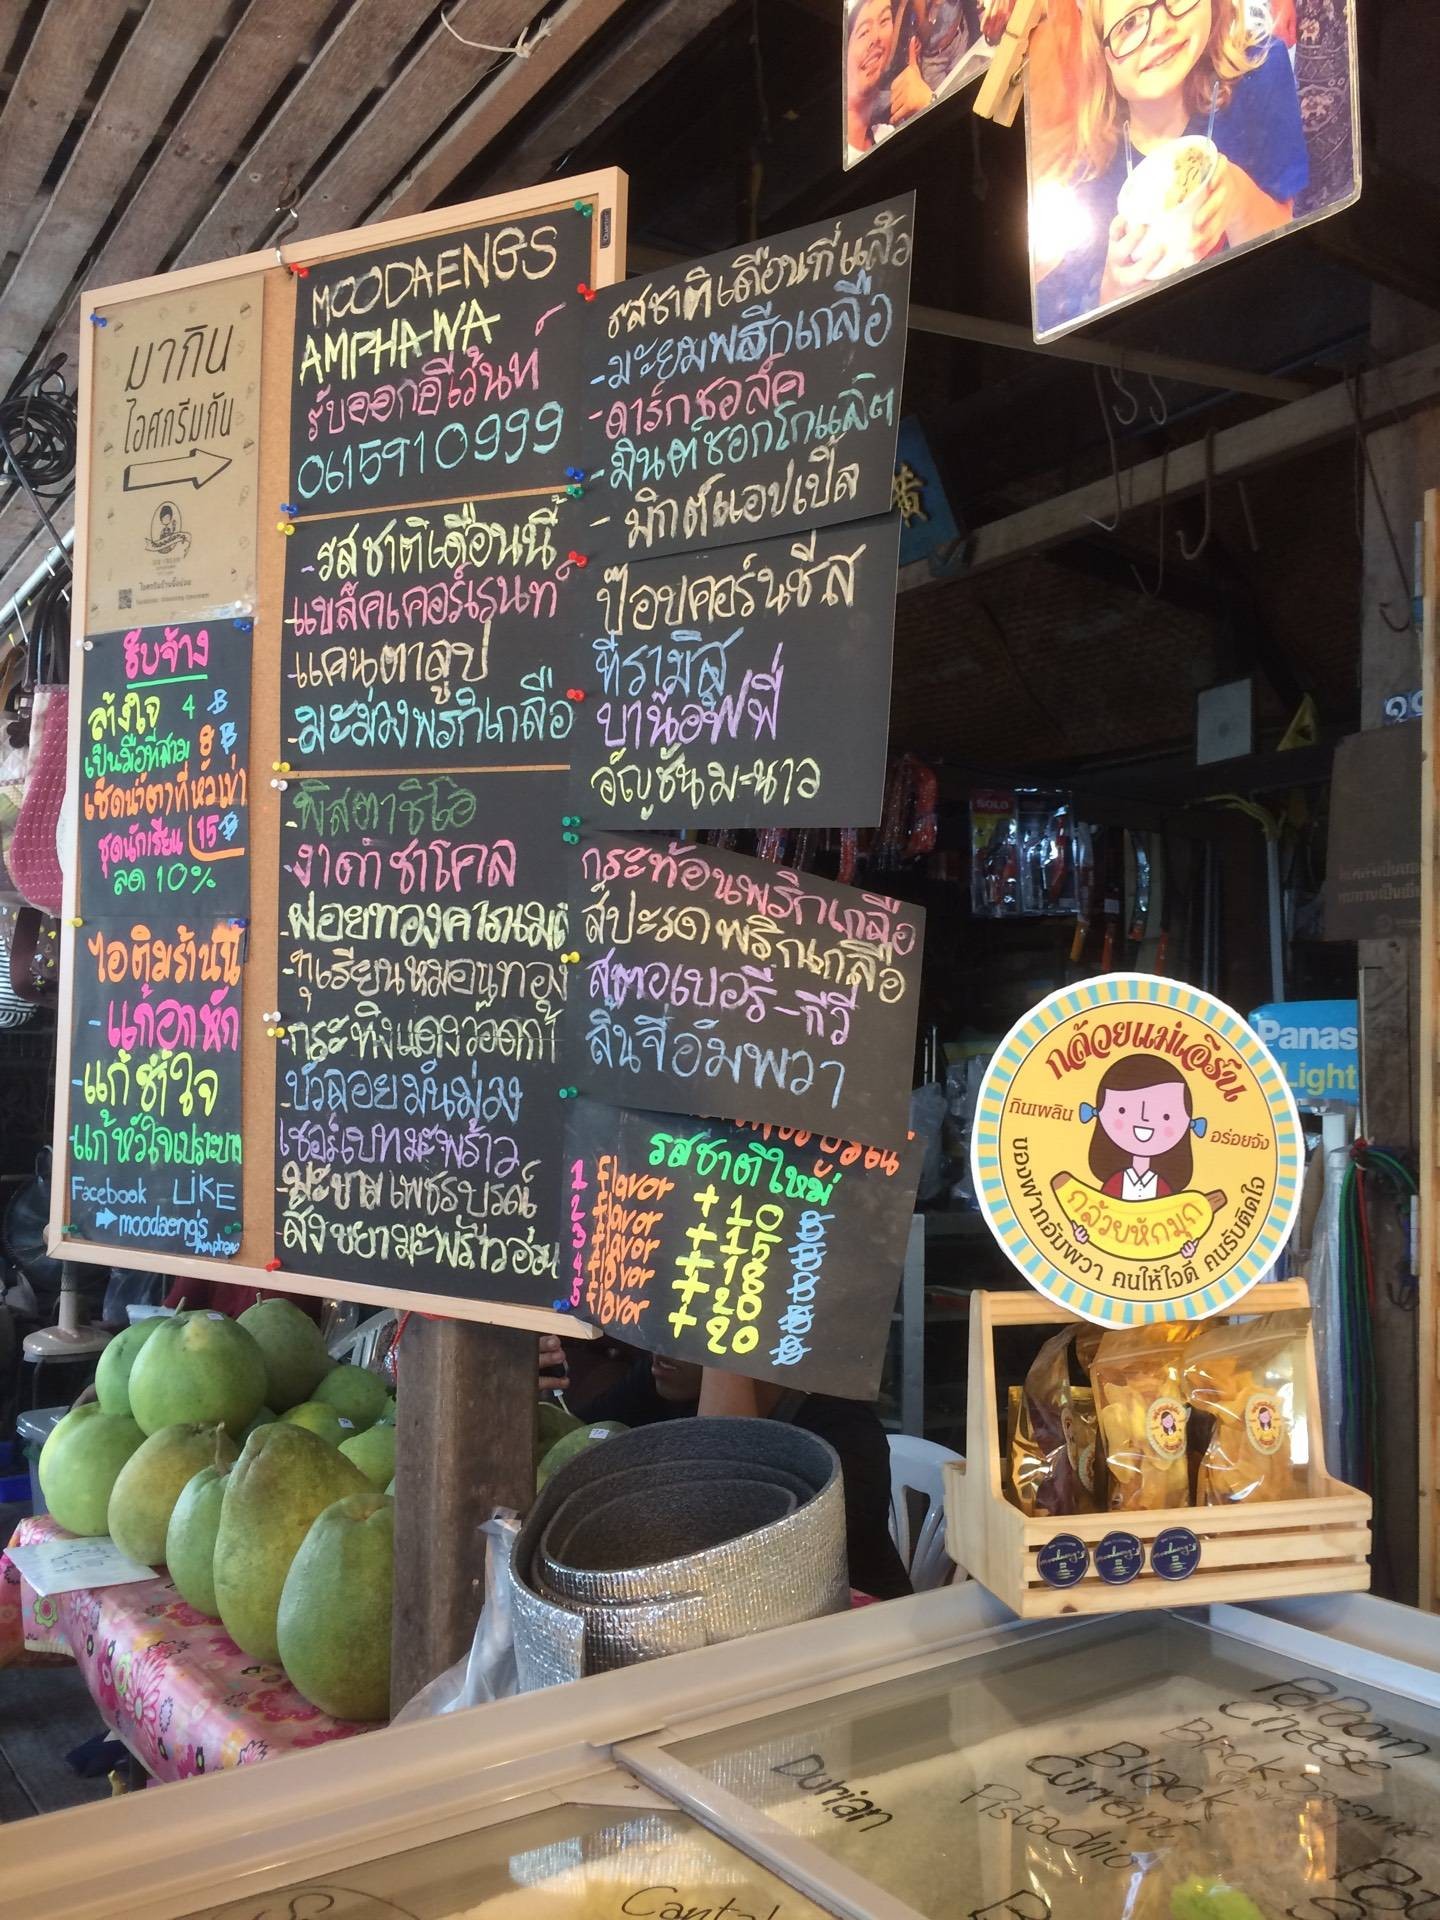 มากิน
ไอศกรีมกัน
รับจ้าง
ล้างใจ 4 ฿
เป็นมือที่สาม 8 ฿
เช็ดน้ำตาที่หัวเข่า
ชุดนักเรียน 15฿
ลด 10%
ไอติมร้านนี้
-แก้อกหัก
-แก้ช้ำใจ
-แก้หัวใจเปราะบาง
Facebook LIKE
moodaeng's
Amphawa
MOODAENGS
AMPHAWA
รับออกอีเว้นท์
0615910999
-รสชาติเดือนนี้
-แบล็คเคอร์เรนท์
-แคนตาลูป
-มะม่วงพริกเกลือ
-พิสตาชิโอ
-งาดำชาโคล
-ฝอยทอง
-ทุเรียนหมอนทอง
-กระทิงแดงวอดก้า
-บัวลอยมันม่วง
เชอร์เบทมะพร้าว
-มะขามเพชรบูรณ์
-สังขยามะพร้าวอ่อน
รสชาติเดือนที่แล้ว
-มะยมพริกเกลือ
-ดาร์กชอล์ค
-มินต์ชอกโกแลต
- มิกต์แอปเปิ้ล
ป๊อบคอร์นชีส
ทีรามิสุ
บาน๊อฟฟี่
อัญชันมะนาว
กระท้อนพริกเกลือ
สปะรดพริกเกลือ
สตอเบอรี่-กีวี่
ลิ้นจี่อัมพวา
รสชาติใหม่
1 flavor +10 ฿
2 flavor +15 ฿
3 flavor +18 ฿
4 flavor +20 ฿
5 flavor +20 ฿
SOLO
Panas
Light
กล้วยแม่เอิร์น
กินเพลิน
อร่อยจัง
กล้วยหักมุก
ของฝากอัมพวา คนให้ใจดี คนรับติดใจ
Popcorn
Cheese
Black Sesame
Black
Currant
Pistachio
Durian